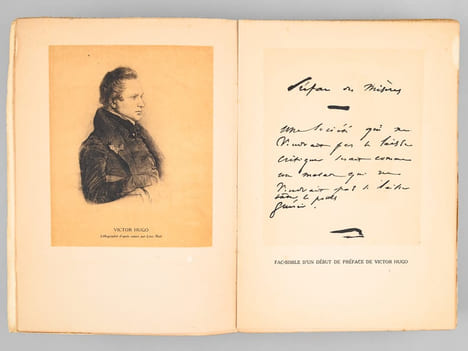 VICTOR HUGO
Lithographié d'après nature par Léon Noël
Préface des Misères
Une société qui ne
voudrait pas se laisser
critiquer serait comme
un malade qui ne
voudrait pas se laisser
tâter le pouls
guérir.
FAC-SIMILE D'UN DÉBUT DE PRÉFACE DE VICTOR HUGO